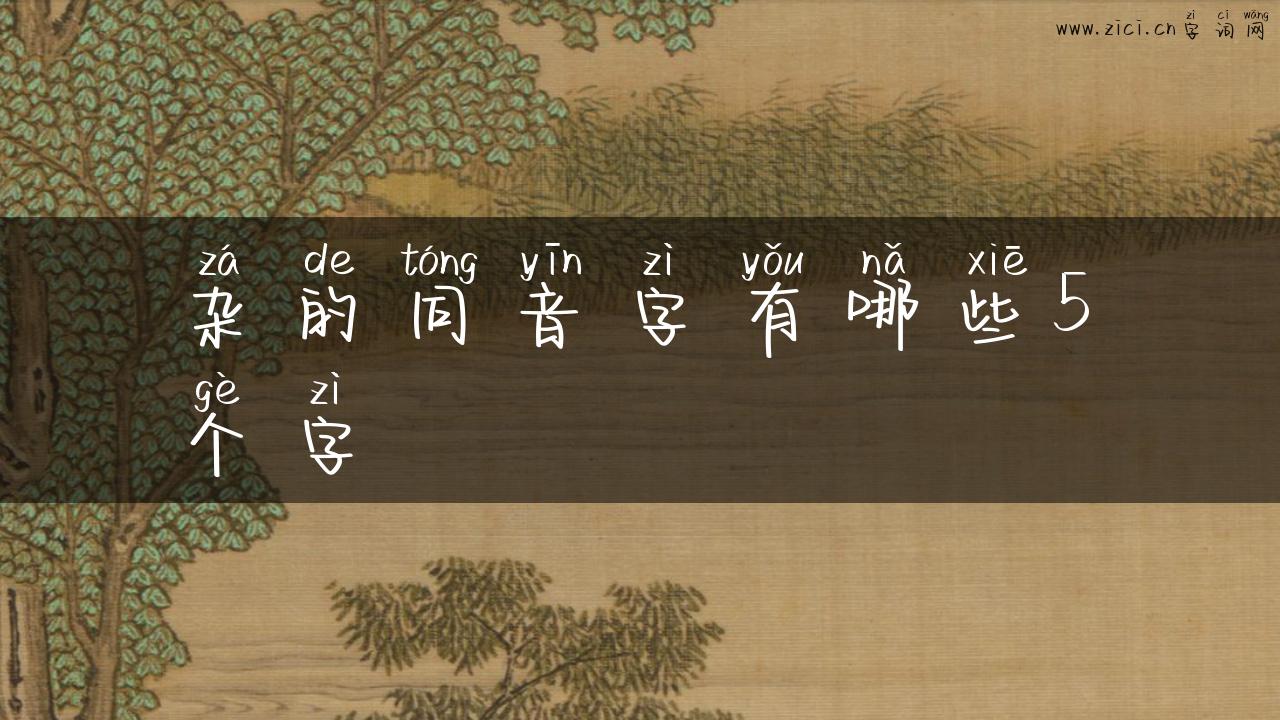 zì cí wǎng
www.zici.cn字词网
zá de tóng yīn zì yǒu nǎ xiē
杂的同音字有哪些5
gè zì
个字